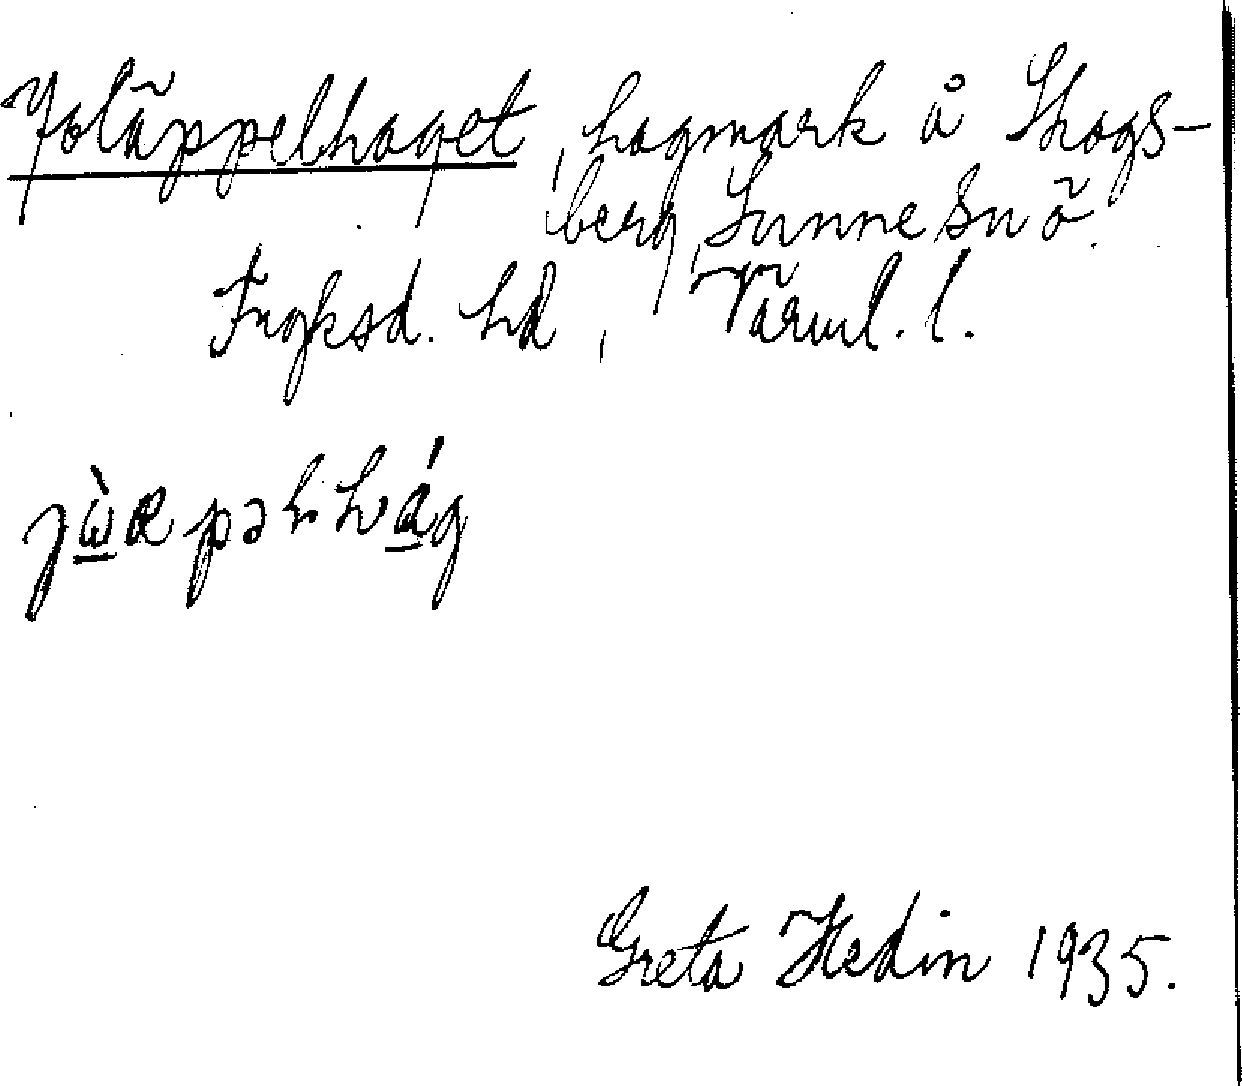 Joläppelhaget, hagmark å Skogs-
berg, Sunne sn ö.
Fryksd. hd, Värml. l.
Greta Hedin 1935.